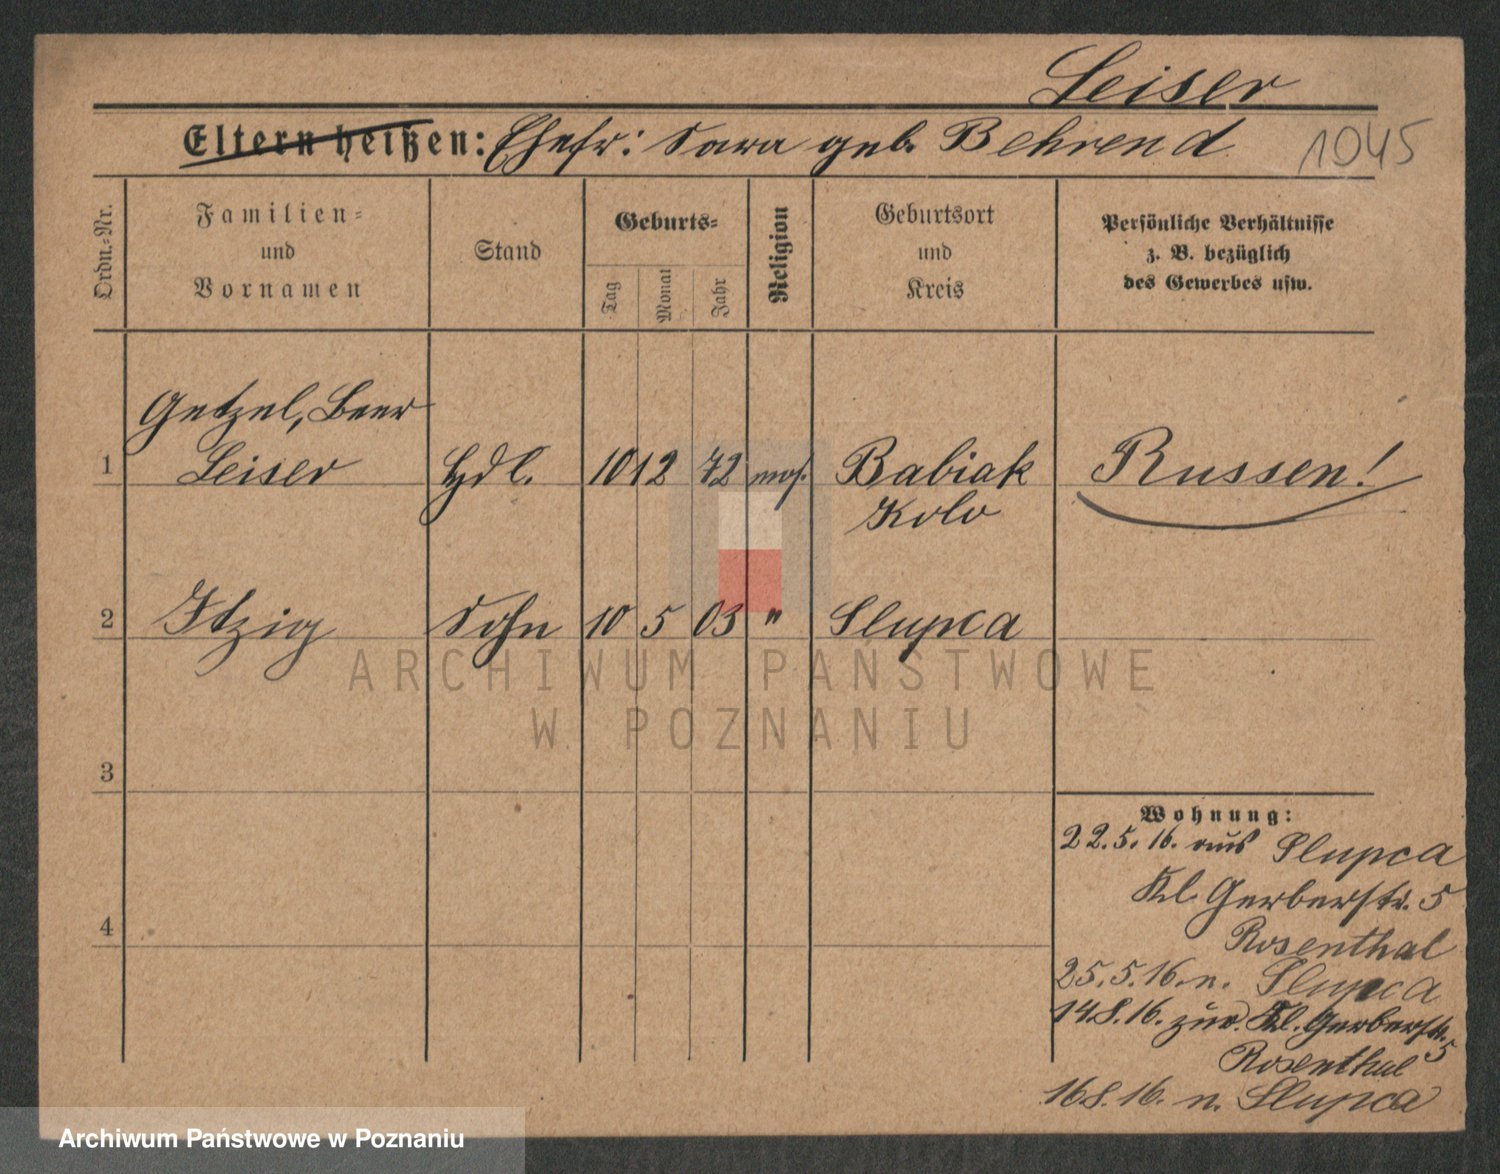 Leiser
Eltern heißen: Ehefr: Sara geb. Behrend 1045
Ordn.-Nr.
Familien-
und
Vornamen
Stand
Geburts-
Tag
Monat
Jahr
Religion
Geburtsort
und
Kreis
Persönliche Verhältnisse
z. B. bezüglich
des Gewerbes usw.
Getzel, Beer
1 Leiser Hdl. 10 12 72 mos. Babiak Russen!
Kolo
2 Itzig Sohn 10 5 03 " Slupca
ARCHIWUM PAŃSTWOWE
W POZNANIU
3
Wohnung:
22.5.16. aus Slupca
Kl. Gerberstr. 5
4
Rosenthal
25.5.16. n. Slupca
14.8.16. zur. Kl. Gerberstr.
5
Rosenthal
16.8.16. n. Slupca
Archiwum Państwowe w Poznaniu